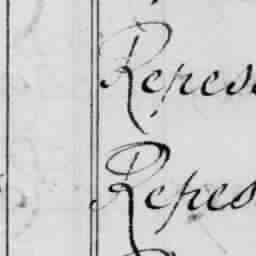 Repes
Repes